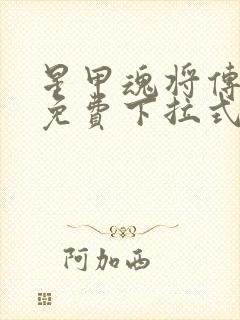 星甲魂将傳
免費下拉式
阿加西